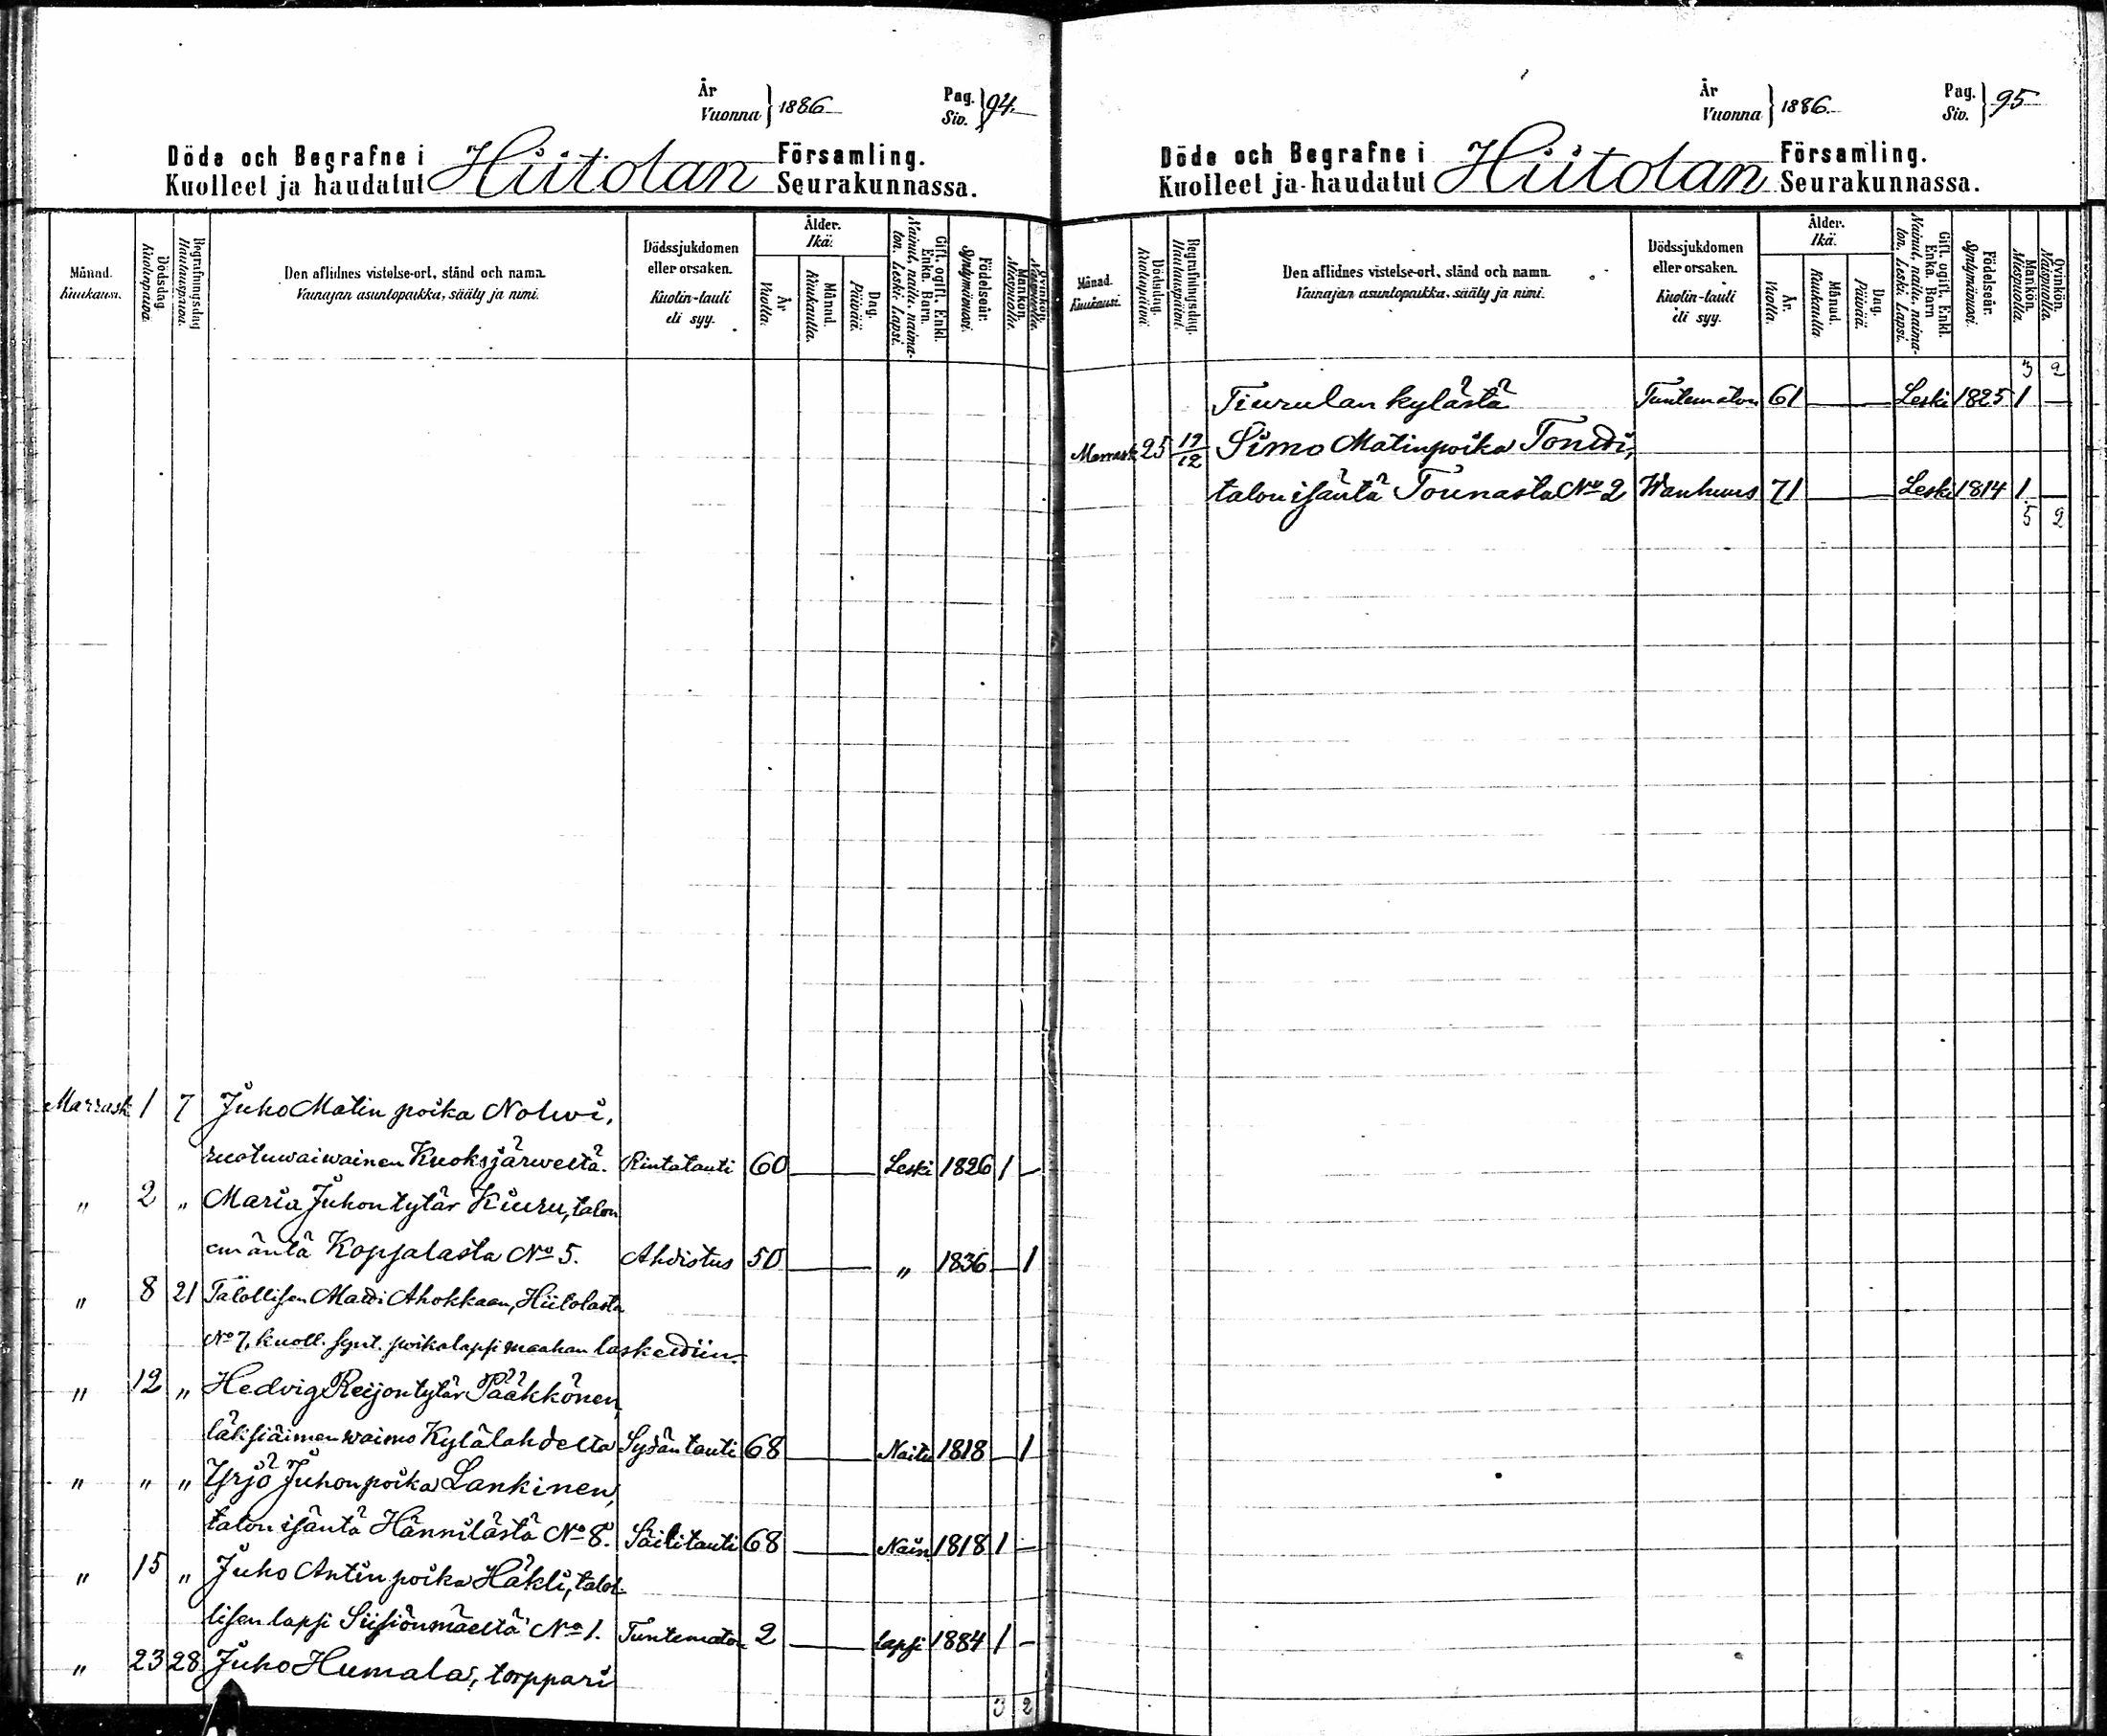 År
Vuonna } 1886
Pag.
Siv. } 94
Döda och Begrafne i Hiitolan Församling.
Kuolleet ja haudatut Seurakunnassa.
Månad. Kuukausi.
Dödsdag. Kuolenpäivä.
Begrafningsdag Hautauspäivä.
Den aflidnes vistelse-ort, stånd och namn.
Vainajan asuntopaikka, sääty ja nimi.
Dödssjukdomen eller orsaken.
Kuolin-tauti eli syy.
Ålder. Ikä.
År Vuotta.
Månad. Kuukautta.
Dag. Päivää.
Gift, ogift. Enkl. Enka. Barn. Nainut, naitu, naimaton. Leski. Lapsi.
Födelseår. Syntymävuosi.
Mankön. Miespuolia.
Qvinkön. Naispuolia.
Marrask 1 7 Juho Matin poika Nolwi,
ruotuwaiwainen Kuoksjärweltä. Rintatauti 60 — Leski 1826 1 —
" 2 " Maria Juhontytär Kiuru, talon
emäntä Kopsalasta No 5. Ahdistus 50 — " 1836 — 1
" 8 21 Talollisen Matti Ahokkaan, Hiitolasta
No 7, kuoll. synt. poikalapsi maahan laskettiin.
" 12 " Hedvig Reijontytär Pääkkönen,
läksiäimen waimo Kylälahdelta Sydäntauti 68 — Naitu 1818 — 1
" " " Yrjö Juhonpoika Lankinen,
talon isäntä Hännilästä No 8. Säilitauti 68 — Nain. 1818 1 —
" 15 " Juho Antin poika Häkli, talol-
lisen lapsi Siisiönmäeltä No 1. Tuntematon 2 — lapsi 1884 1 —
" 23 28 Juho Humala, torppari
3 2
År
Vuonna } 1886
Pag.
Siv. } 95
Döda och Begrafne i Hiitolan Församling.
Kuolleet ja haudatut Seurakunnassa.
Månad. Kuukausi.
Dödsdag. Kuolinpäivä
Begrafningsdag. Hautauspäivä.
Den aflidnes vistelse-ort, stånd och namn.
Vainajan asuntopaikka, sääty ja nimi.
Dödssjukdomen eller orsaken.
Kuolin-tauti eli syy.
Ålder. Ikä.
År. Vuotta.
Månad. Kuukautta
Dag. Päivää.
Gift, ogift. Enkl. Enka. Barn Nainut, naitu, naimaton. Leski. Lapsi.
Födelseår. Syntymävuosi.
Mankön. Miespuolia.
Qvinkön. Naispuolia.
3 2
Tiurulan kylästä Tuntematon 61 — Leski 1825 1 —
Marrask 25 12/12 Simo Matinpoika Tontti,
talon isäntä Tounasta No 2 Wanhuus 71 — Leski 1814 1 —
5 2